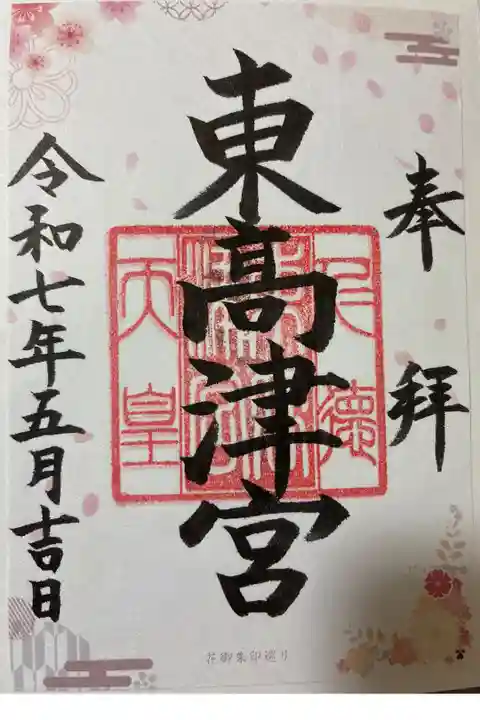 奉拝
東髙津宮
仁德
天皇
令和七年五月吉日
花御朱印巡り